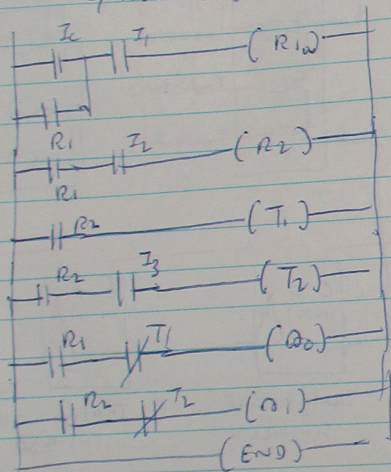 I₀ I₁ (R₁)
R₁ I₂ (R₂)
R₁
R₂ (T₁)
R₂ I₃ (T₂)
R₁ T₁ (Q₀)
R₂ T₂ (Q₁)
(END)